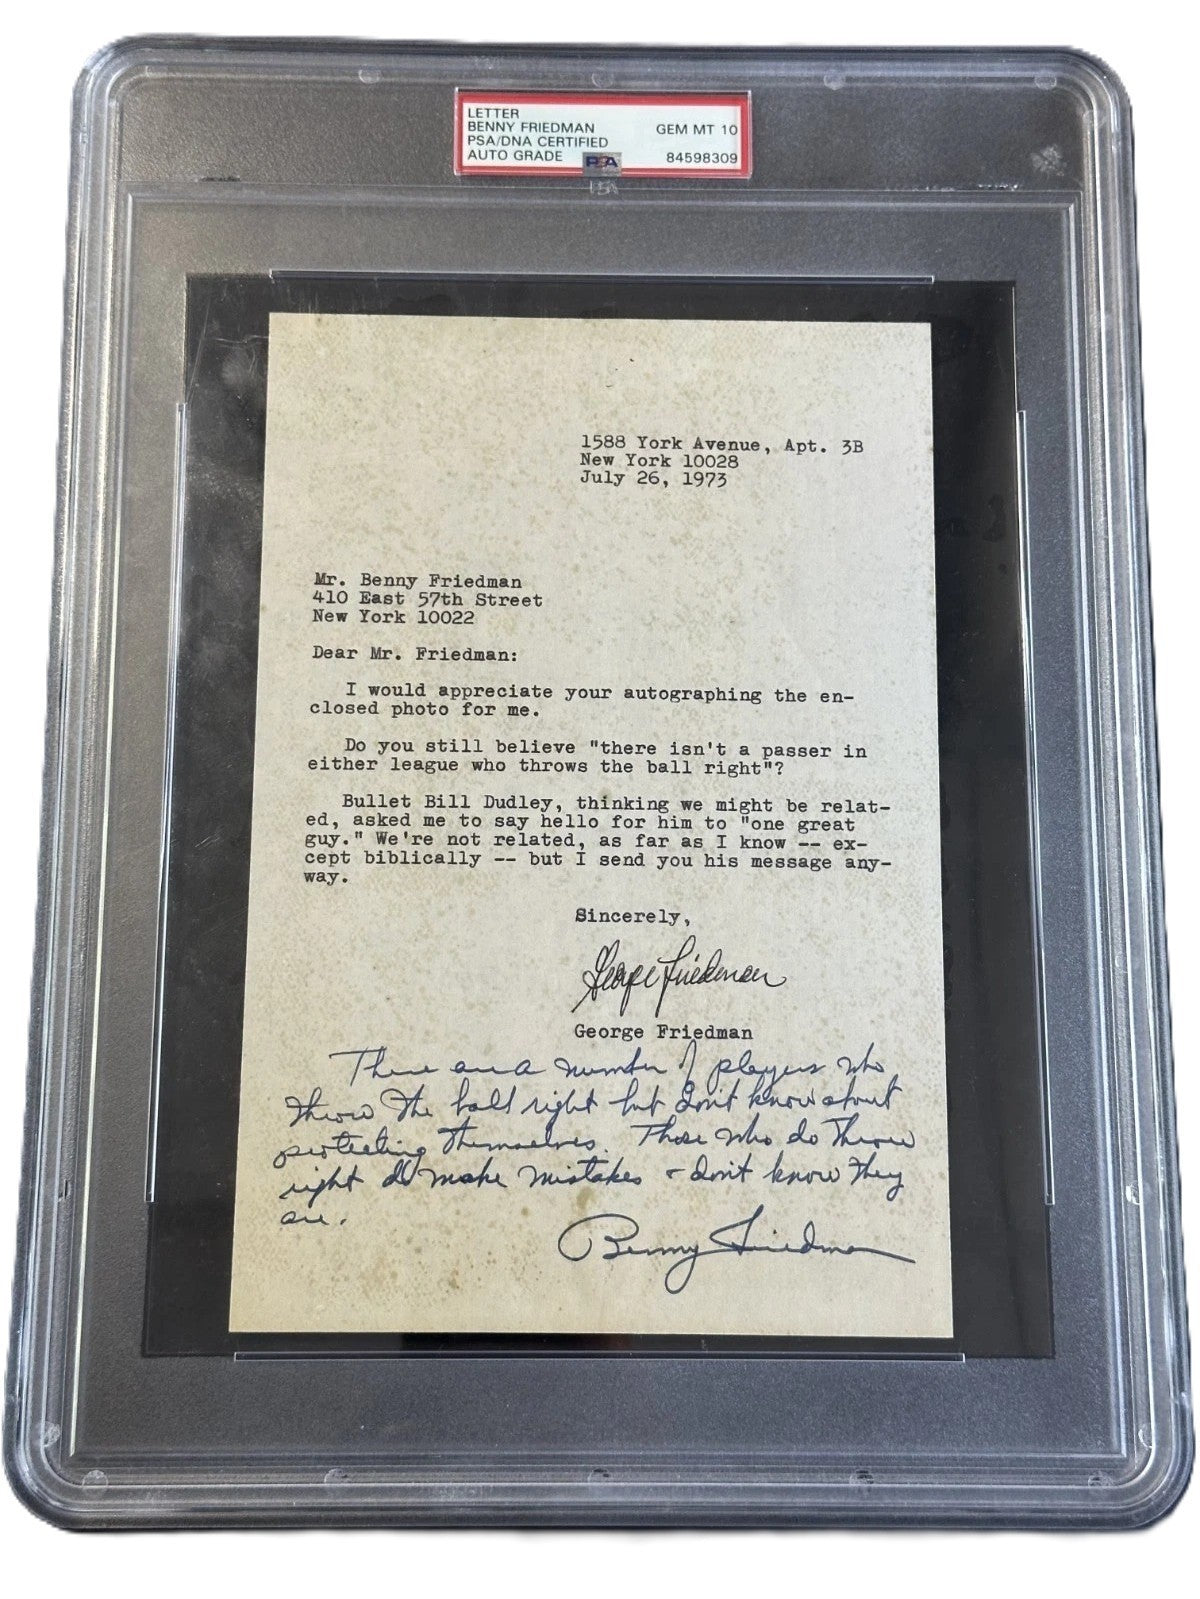 LETTER
BENNY FRIEDMAN GEM MT 10
PSA/DNA CERTIFIED
AUTO GRADE PSA 84598309
1588 York Avenue, Apt. 3B
New York 10028
July 26, 1973
Mr. Benny Friedman
410 East 57th Street
New York 10022
Dear Mr. Friedman:
I would appreciate your autographing the en-
closed photo for me.
Do you still believe "there isn't a passer in
either league who throws the ball right"?
Bullet Bill Dudley, thinking we might be relat-
ed, asked me to say hello for him to "one great
guy." We're not related, as far as I know -- ex-
cept biblically -- but I send you his message any-
way.
Sincerely,
George Friedman
George Friedman
There are a number of players who
throw the ball right but don't know about
protecting themselves. Those who do throw
right do make mistakes & don't know they
are.
Benny Friedman